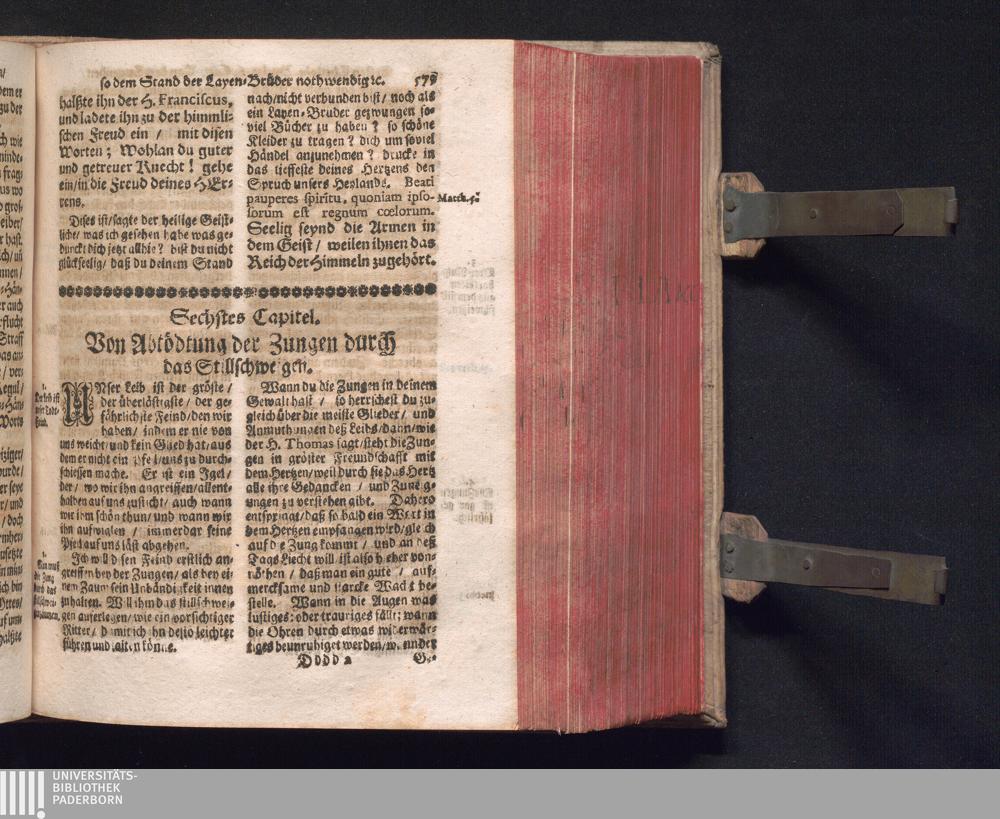 so dem Stand der Layen-Brüder nothwendig ꝛc. 579
halßte ihn der H. Franciscus,
und ladete ihn zu der himmli-
schen Freud ein / mit disen
Worten; Wohlan du guter
und getreuer Knecht! gehe
ein/in die Freud deines HEr-
rens.
Dises ist/sagte der heilige Geist-
liche/ was ich gesehen habe was ge-
dunckt dich jetzt allhie? bist du nicht
glückseelig/ daß du deinem Stand
nach/nicht verbunden bist/ noch als
ein Layen-Bruder gezwungen so-
viel Bücher zu haben? so schöne
Kleider zu tragen? dich um soviel
Händel anzunehmen? drucke in
das tieffeste deines Hertzens den
Spruch unsers Heylands. Beati
pauperes spiritu, quoniam ipso-
sorum est regnum cœlorum.
Seelig seynd die Armen in
dem Geist / weilen ihnen das
Reich der Himmeln zugehört.
Matth. 5.
Sechstes Capitel.
Von Abtödtung der Zungen durch
das Stillschweigen.
1.
Der Leib ist
UNser Leib ist der gröste /
der überlästigste / der ge-
fährlichste Feind/den wir
haben/ indem er nie von
uns weicht/ und kein Glied hat/aus
dem er nicht ein Pfeil/uns zu durch-
schiessen mache. Er ist ein Igel/
der/ wo wir ihn angreiffen/allent-
halben auf uns zusticht/ auch wann
wir ihm schön thun/ und wann wir
ihn aufwiglen / immerdar seine
Pfeil auf uns läst abgehen.
Ich will disen Feind erstlich an-
greiffen bey der Zungen/ als bey ei-
nem Zaum sein Unbändigkeit innen
zuhalten. Will ihm das stillschwei-
gen auferlegen/ wie ein vorsichtiger
Ritter/ damit ich ihn desto leichter
führen und halten könne.
2.
Man muß
die Zung
durch das
Wann du die Zungen in deinem
Gewalt hast / so herrschest du zu-
gleich über die meiste Glieder/ und
Anmuthungen deß Leibs/dann/wie
der H. Thomas sagt/steht die Zun-
gen in gröster Freundschafft mit
dem Hertzen/weil durch sie das Hertz
alle ihre Gedancken / und Zune g-
ungen zu verstehen gibt. Dahero
entspringt/daß so bald ein Wort in
dem Hertzen empfangen wird/gleich
auf die Zung kommt / und an deß
Tags Liecht will/ist also h eher von-
nöthen / daß man ein gute / auf-
mercksame und starcke Wacht be-
stelle. Wann in die Augen was
lustiges/oder trauriges fällt; wann
die Ohren durch etwas widerwär-
tiges beunruhiget werden/
Dddd 2 Ge-
UNIVERSITÄTS-
BIBLIOTHEK
PADERBORN